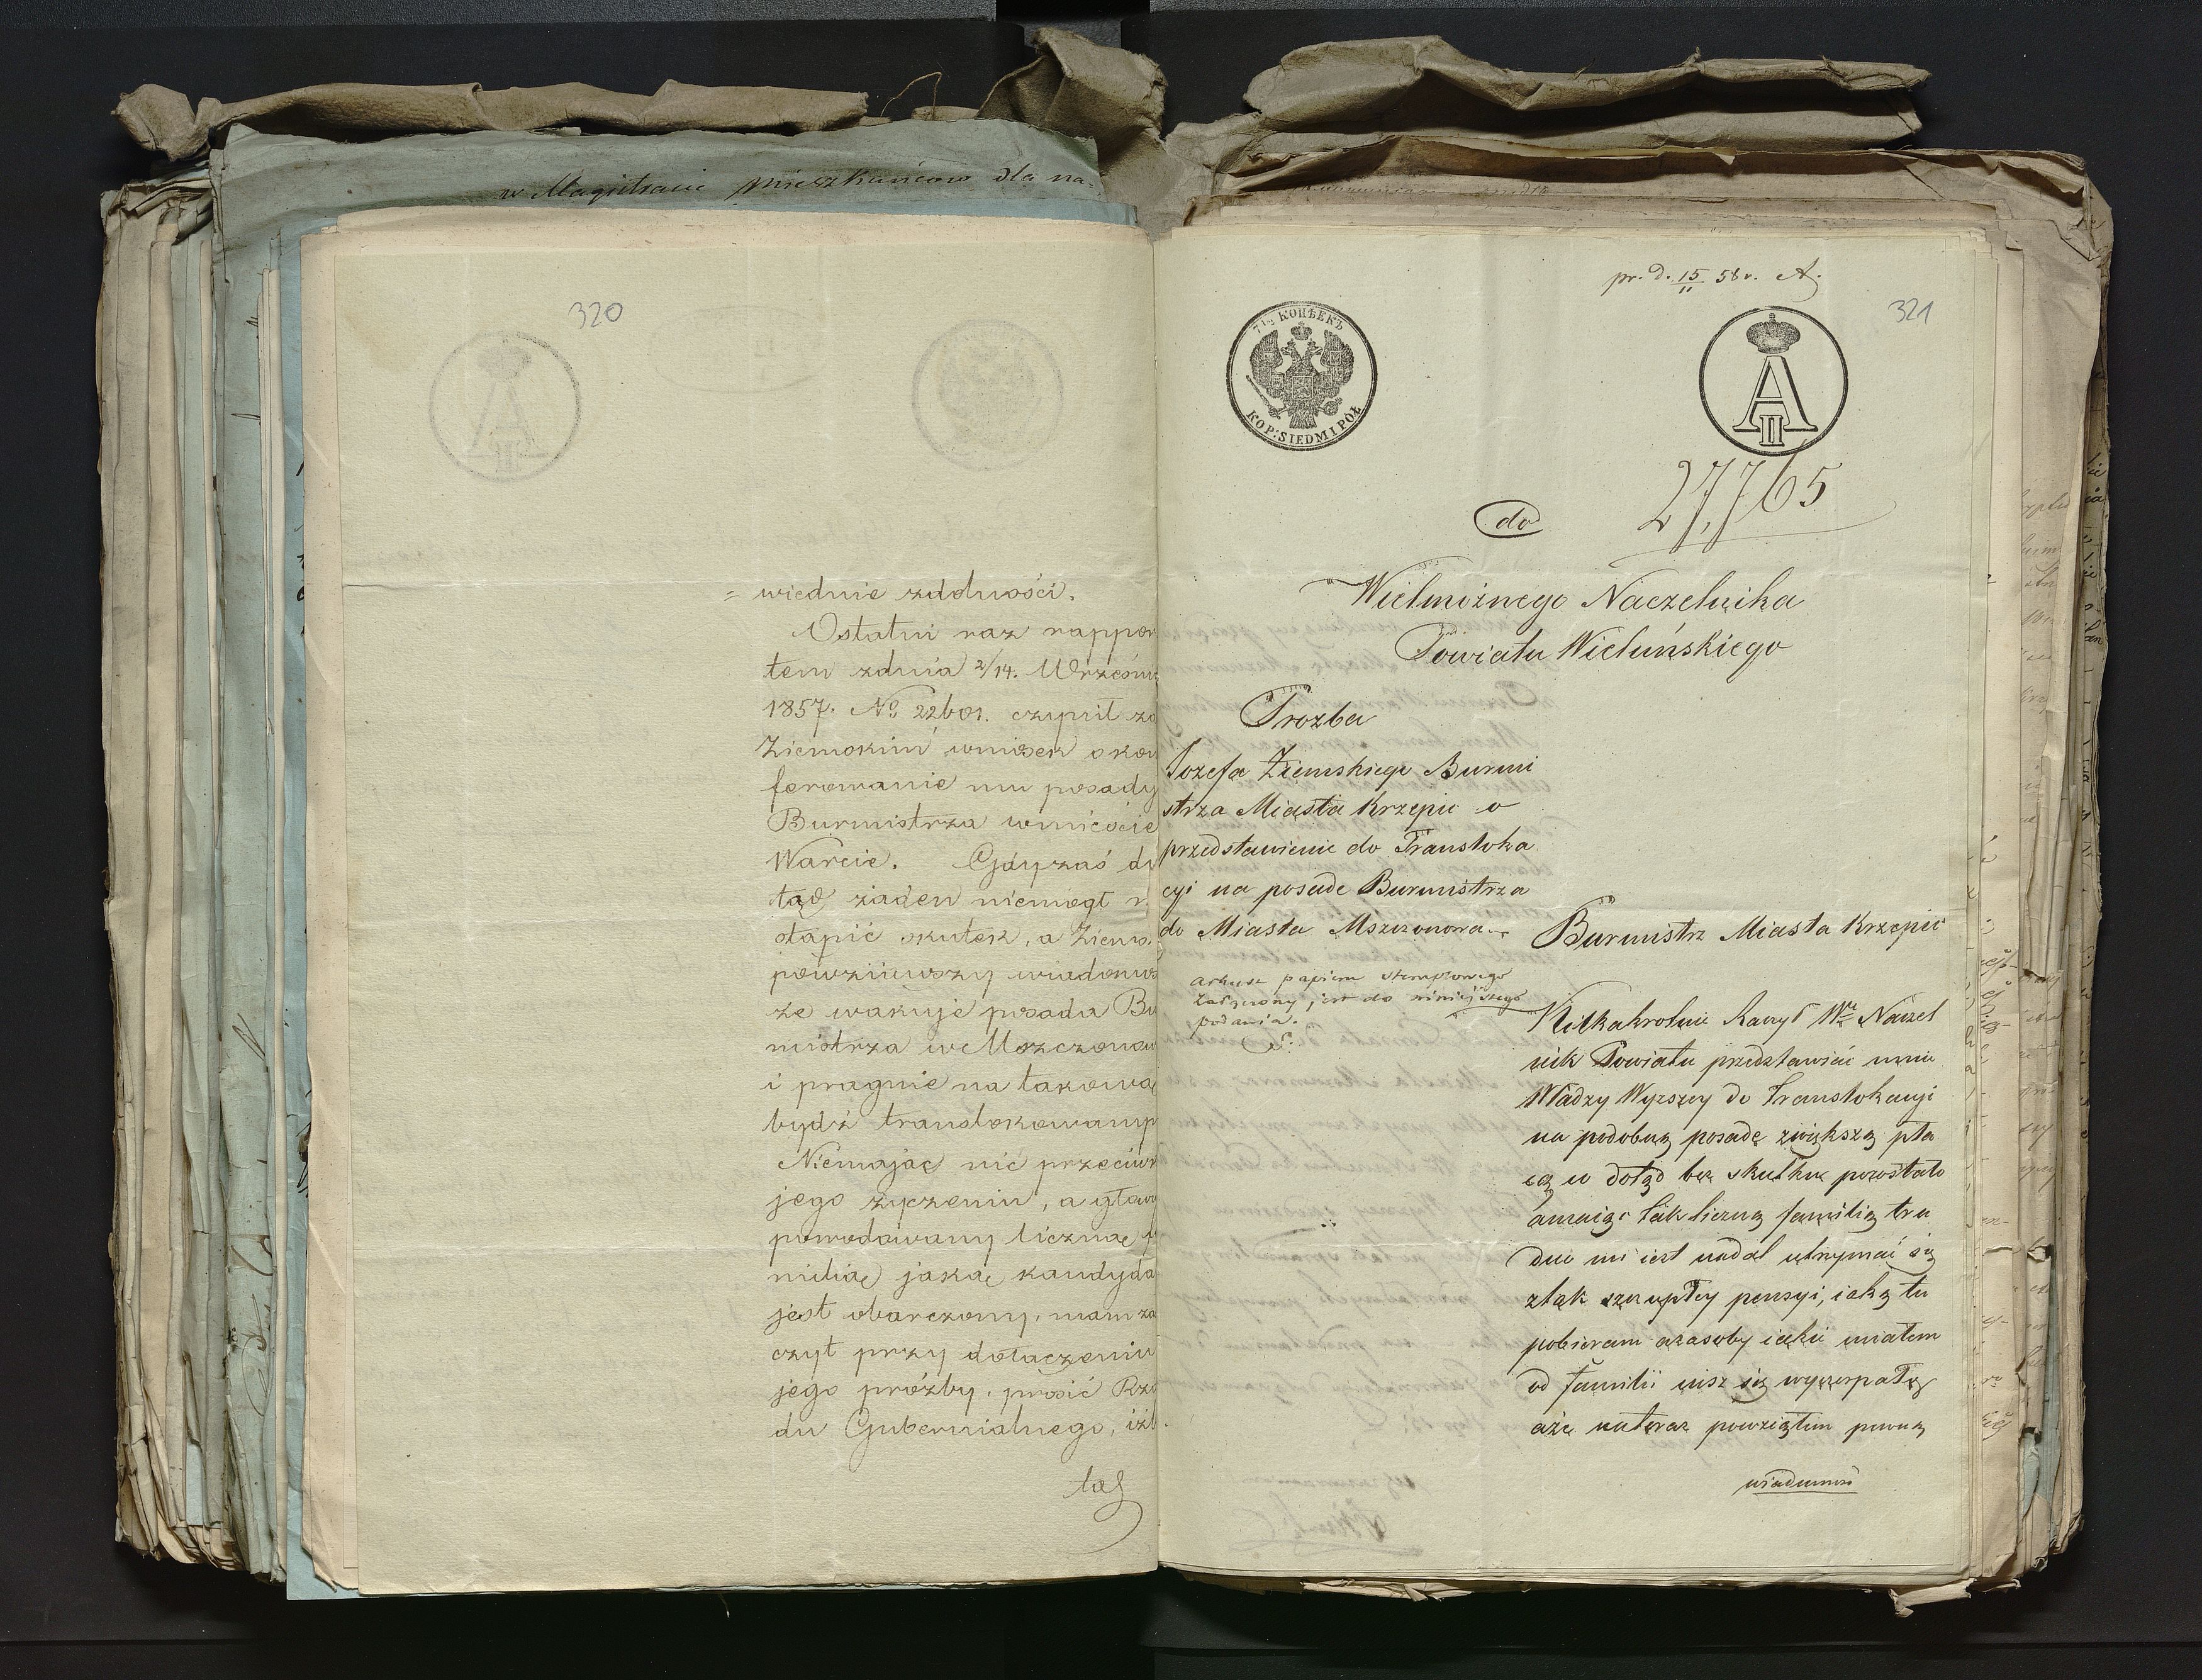 w Magistracie mieszkańców dla na=
320
= wiednie zdolności.
Ostatni raz rappor
tem zdnia 2/14. Wrześni
1857. No 22601. czynił za
Ziemskim wniosek o kon
ferowanie mu posady
Burmistrza wmieście
Warcie. Gdyzaś do
tąd żaden niemógł n
stąpić skutek, a Ziems
powziąwszy wiadomoś
że wakuje posada Bu
mistrza w Mszczonow
i pragnie na takową
bydź translokowanym
Niemając nic przeciw
jego życzeniu, a głów
powodowany liczną f
milią jaką kandyda
jest obarczony, mam za
czyt przy dołączeniu
jego prośby, prosić Rzą
du Gubernialnego, iżb
taż
pr. d. 15/11 58 r.
321
7½ КОПѢЕКЪ
KOP: SIEDM I PÓŁ
A II
27,765
do
Wielmożnego Naczelnika
Powiatu Wieluńskiego
Prozba
Jozefa Ziemskiego Burmi
strza Miasta Krzepic o
przedstawienie do Transloka
cyi na posade Burmistrza
do Miasta Mszczonowa
arkusz papieru stemplowego
załączony jest do niniejszego
podania.
Burmistrz Miasta Krzepic
Kilkakrotnie Raczył Wny Naczel
nik Powiatu przedstawiać mnie
Władzy Wyzszey do Translokacyi
na podobną posadę zwiększą pła
cą co dotąd bez skutku pozostało
amaiąc tak liczną familią tru
dno mi iest nadal utrzymać się
ztak szczupłey pensyi, iaką tu
pobieram azasoby iakie miałem
od familii iusz się wyczerpały
aże nateraz powziąłem pewną
wiadomość